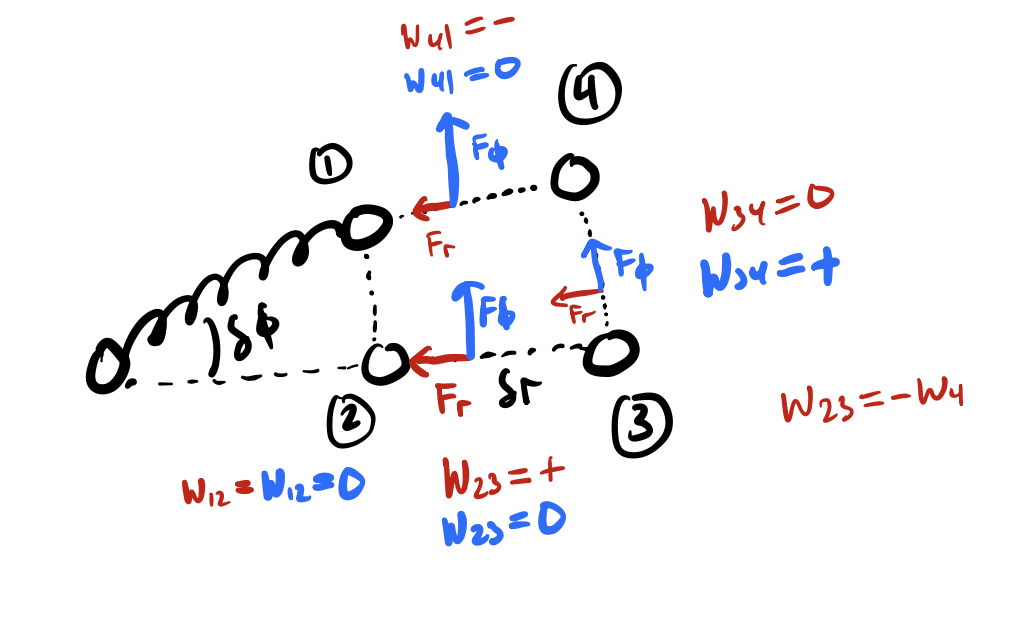 W41 = -
W41 = 0
④
①
Fϕ
Fr
W34 = 0
W34 = +
Fϕ
Fr
δϕ
Fϕ
Fr
δr
②
③
W23 = -W4
W12 = W12 = 0
W23 = +
W23 = 0